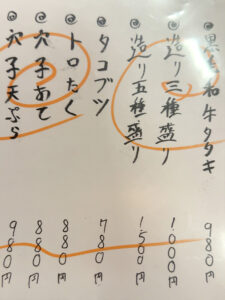 黒毛和牛タタキ 980円
造り三種盛り 1000円
造り五種盛り 1500円
タコブツ 780円
トロたく 880円
穴子あて 880円
穴子天ぷら 980円